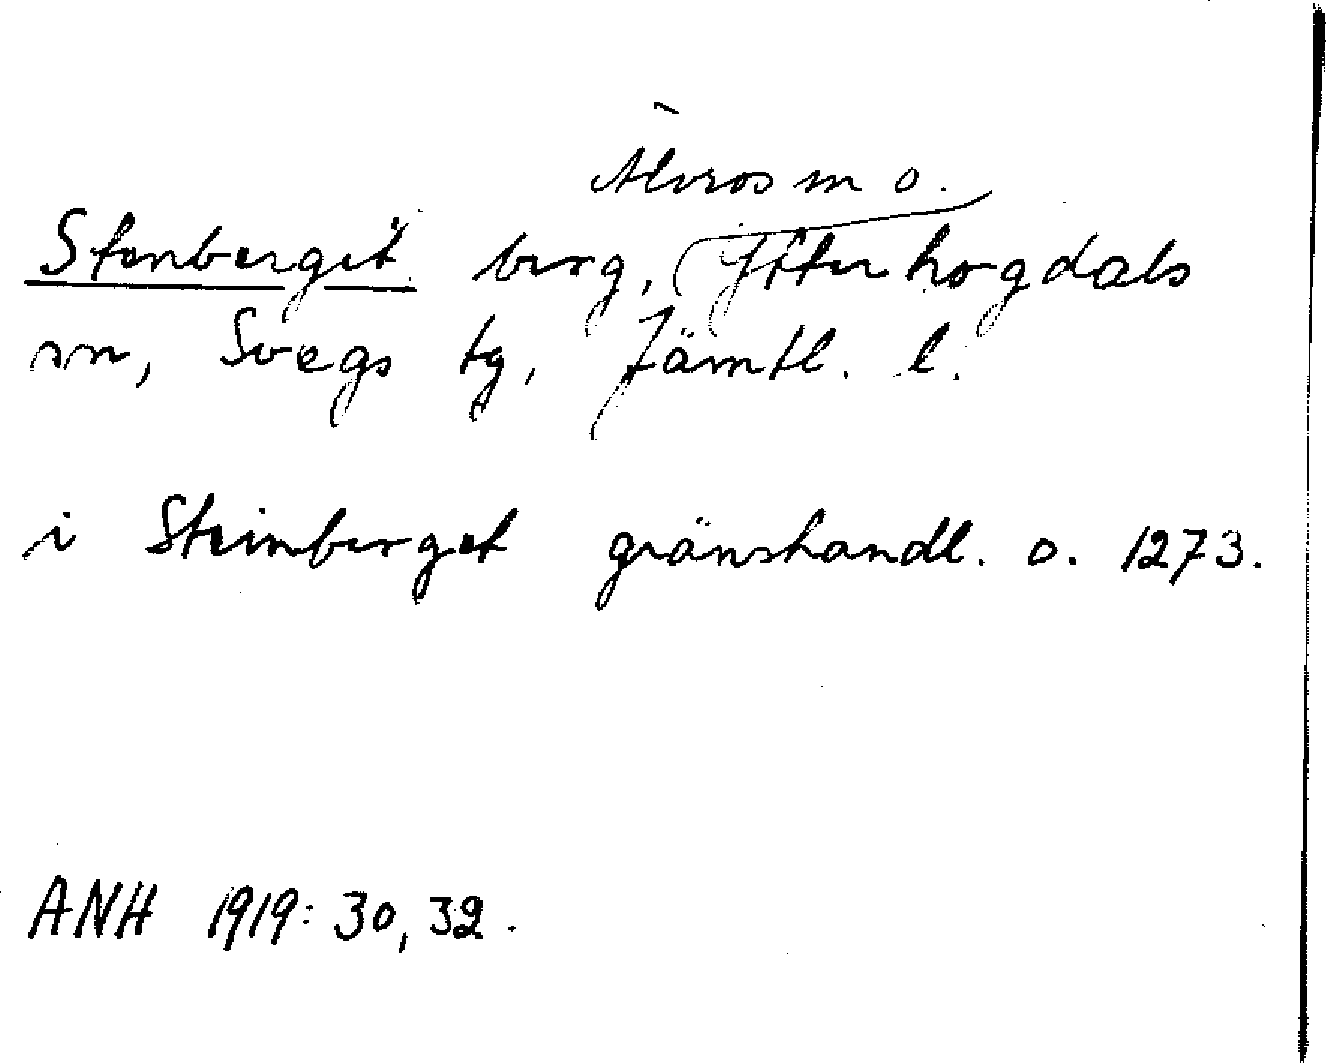 Älvros sn o.
Stenberget berg, (Ytterhogdals
sn, Svegs tg, Jämtl. l.
i Steinberget gränshandl. o. 1273.
ANH 1919: 30, 32.